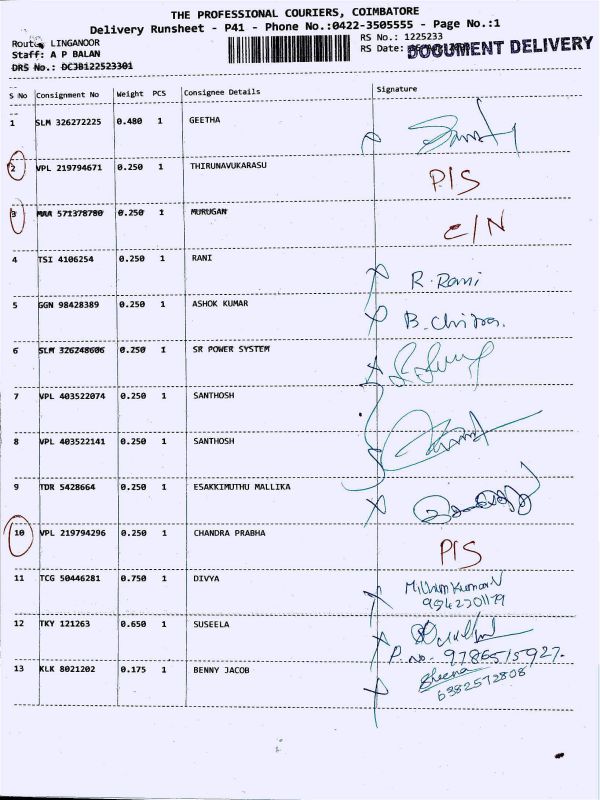 THE PROFESSIONAL COURIERS, COIMBATORE
Delivery Runsheet - P41 - Phone No.:0422-3505555 - Page No.:1
Route: LINGANOOR
RS No.: 1225233
Staff: A P BALAN
RS Date:
DOCUMENT DELIVERY
DRS No.: DC3B122523301
S No Consignment No Weight PCS Consignee Details Signature
1 SLM 326272225 0.480 1 GEETHA
2 VPL 219794671 0.250 1 THIRUNAVUKARASU P/S
3 MAA 571378780 0.250 1 MURUGAN C/N
4 TSI 4106254 0.250 1 RANI R. Rani
5 GGN 98428389 0.250 1 ASHOK KUMAR B. Chitra.
6 SLM 326248606 0.250 1 SR POWER SYSTEM
7 VPL 403522074 0.250 1 SANTHOSH
8 VPL 403522141 0.250 1 SANTHOSH
9 TDR 5428664 0.250 1 ESAKKIMUTHU MALLIKA
10 VPL 219794296 0.250 1 CHANDRA PRABHA P/S
11 TCG 50446281 0.750 1 DIVYA
12 TKY 121263 0.650 1 SUSEELA
P. no. 9786515927.
13 KLK 8021202 0.175 1 BENNY JACOB Sheena
6382572808